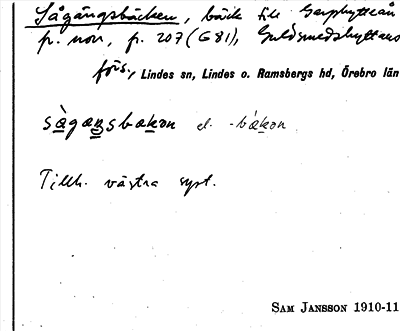 Sågängsbäcken, bäck till Gasphytteån
p. norr, p. 207 (G 81), Guldsmedshyttans
förs., Lindes sn, Lindes o. Ramsbergs hd, Örebro län
sàgaŋsbakən el. -bàkən
Tillh. västra syst.
SAM JANSSON 1910-11